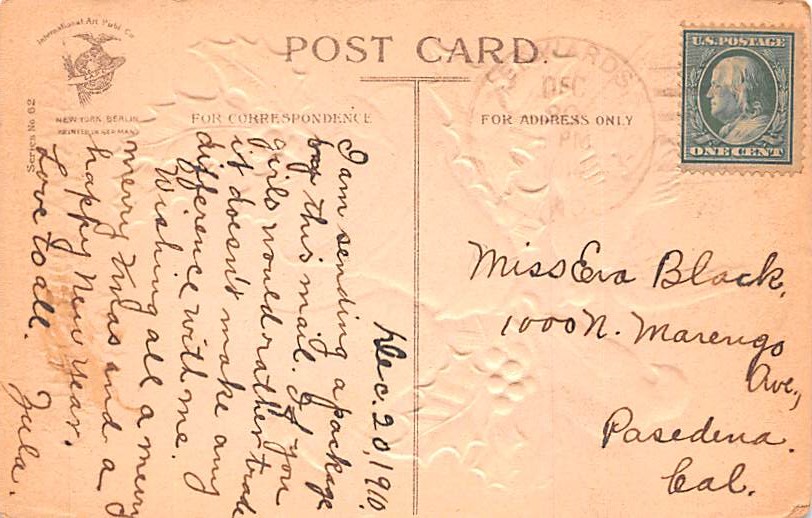 International Art Publ. Co.
NEW YORK BERLIN
PRINTED IN GERMANY
Series No 62
POST CARD.
FOR CORRESPONDENCE
FOR ADDRESS ONLY
U.S. POSTAGE
ONE CENT
DEC
20
PM
Dec. 20, 1910.
I am sending a package
by this mail. If you
girls would rather trade
it doesn't make any
difference with me.
Wishing all a merry
merry Xmas and a
happy New Year.
Love to all.
Zula.
Miss Eva Black,
1000 N. Marengo
Ave.,
Pasedena.
Cal.